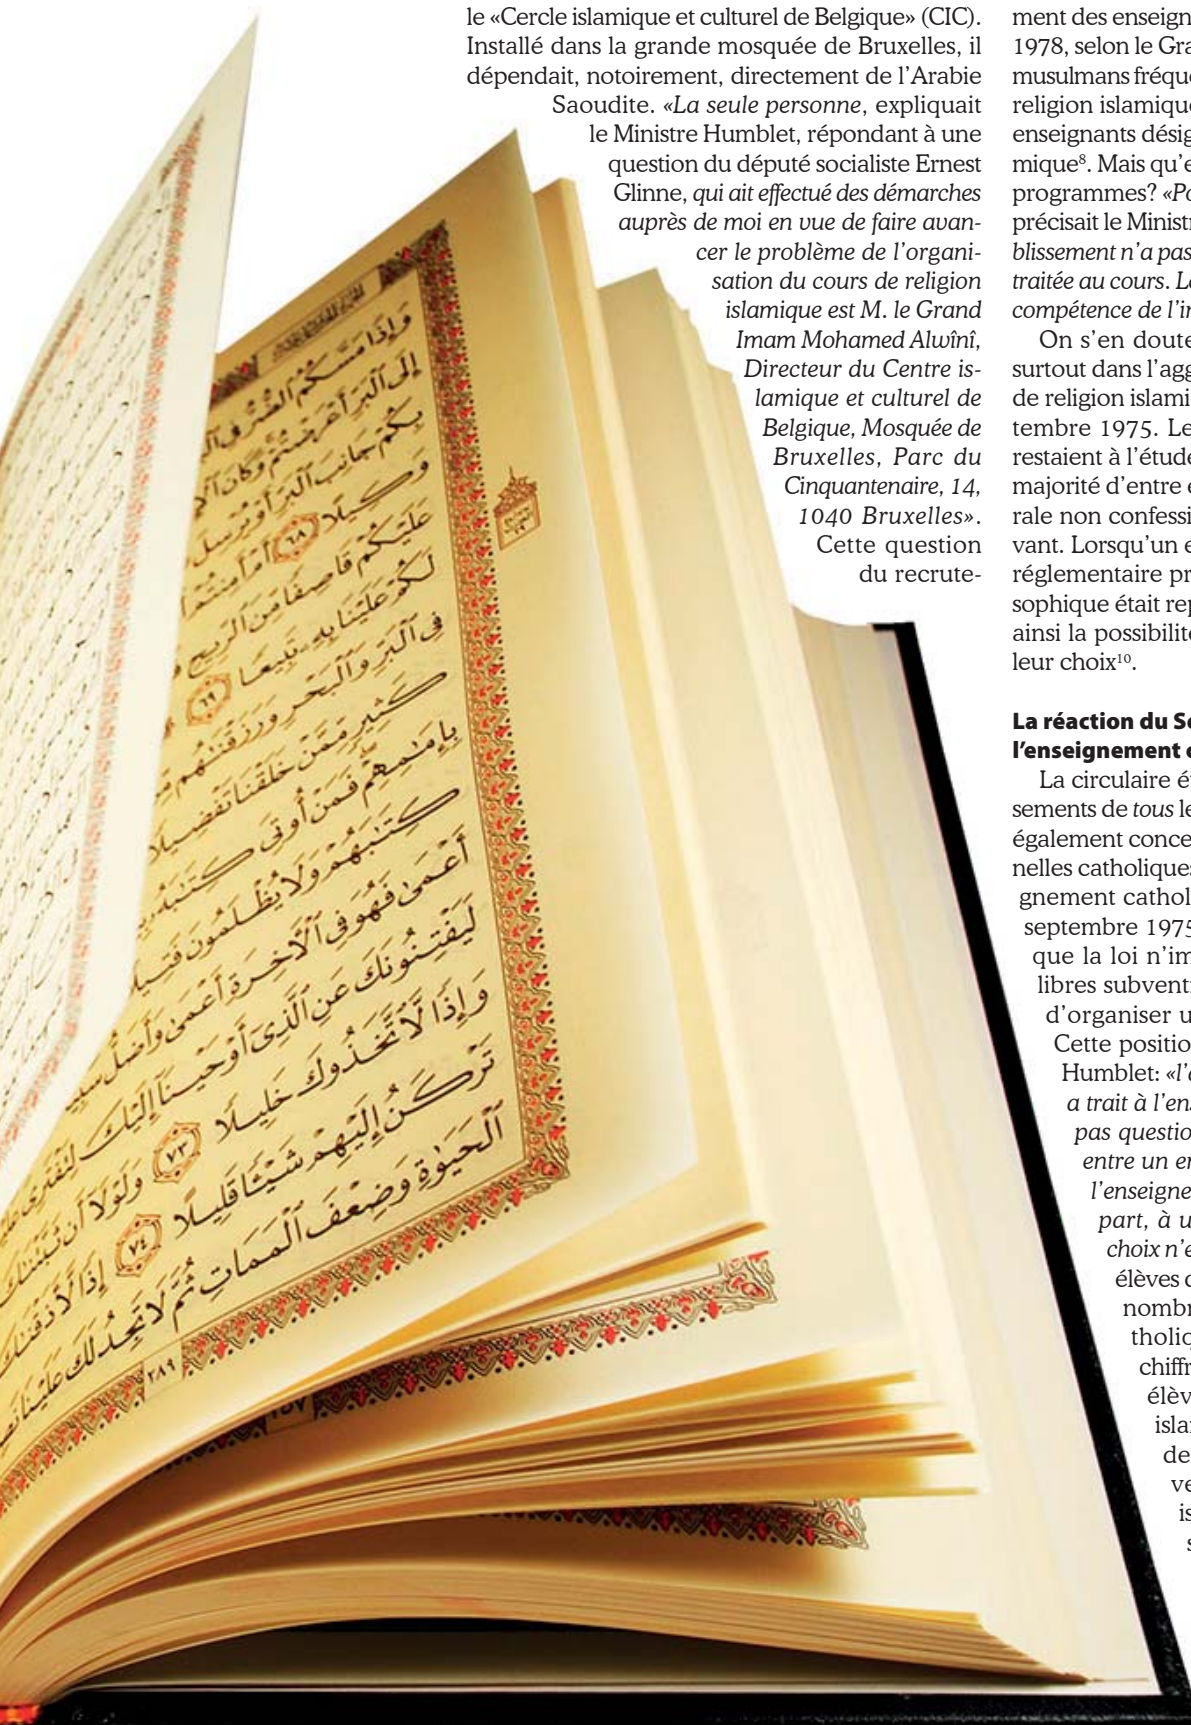 le «Cercle islamique et culturel de Belgique» (CIC).
Installé dans la grande mosquée de Bruxelles, il
dépendait, notoirement, directement de l'Arabie
Saoudite. «La seule personne, expliquait
le Ministre Humblet, répondant à une
question du député socialiste Ernest
Glinne, qui ait effectué des démarches
auprès de moi en vue de faire avan-
cer le problème de l'organi-
sation du cours de religion
islamique est M. le Grand
Imam Mohamed Alwînî,
Directeur du Centre is-
lamique et culturel de
Belgique, Mosquée de
Bruxelles, Parc du
Cinquantenaire, 14,
1040 Bruxelles».
Cette question
du recrute-
ment des enseign
1978, selon le Gra
musulmans fréque
religion islamique
enseignants désig
mique⁸. Mais qu'e
programmes? «Po
précisait le Ministr
blissement n'a pas
traitée au cours. Le
compétence de l'in
On s'en doute
surtout dans l'agg
de religion islami
tembre 1975. Le
restaient à l'étude
majorité d'entre e
rale non confessi
vant. Lorsqu'un e
réglementaire pr
sophique était rep
ainsi la possibilité
leur choix¹⁰.
La réaction du Se
l'enseignement c
La circulaire ét
sements de tous le
également conce
nelles catholiques
gnement cathol
septembre 1975
que la loi n'im
libres subventi
d'organiser u
Cette positio
Humblet: «l'a
a trait à l'ens
pas questio
entre un en
l'enseigne
part, à u
choix n'e
élèves d
nombr
tholiq
chiffr
élèv
isla
de
ve
is
s
وَإِذَا مَسَّكُمُ ٱلضُّرُّ فِى ٱلْ
إِلَى ٱلْبَرِّ أَعْرَضْتُمْ وَكَانَ ٱلْإِ
بِكُمْ جَانِبَ ٱلْبَرِّ أَوْ يُرْسِلَ
وَكِيلًا ٦٨ أَمْ أَمِنتُمْ أَ
عَلَيْكُمْ قَاصِفًا مِّنَ ٱلرِّيحِ
لَكُمْ عَلَيْنَا بِهِۦ تَبِيعًا ٦٩
فِى ٱلْبَرِّ وَٱلْبَحْرِ وَرَزَقْنَٰهُم
كَثِيرٍ مِّمَّنْ خَلَقْنَا تَفْضِيلًا
بِإِمَٰمِهِمْ فَمَنْ أُوتِىَ كِتَٰبَهُۥ
كِتَٰبَهُمْ وَلَا يُظْلَمُونَ فَتِيلًا
أَعْمَىٰ فَهُوَ فِى ٱلْءَاخِرَةِ أَعْمَىٰ وَأَضَلُّ سَبِي
لَيَفْتِنُونَكَ عَنِ ٱلَّذِىٓ أَوْحَيْنَآ إِلَيْكَ لِتَفْتَرِىَ عَلَيْ
وَإِذًا لَّٱتَّخَذُوكَ خَلِيلًا ٧٣ وَلَوْلَآ أَن ثَبَّتْنَٰكَ
تَرْكَنُ إِلَيْهِمْ شَيْـًٔا قَلِيلًا ٧٤ إِذًا لَّأَذَقْنَٰكَ
ٱلْحَيَوٰةِ وَضِعْفَ ٱلْمَمَاتِ ثُمَّ لَا تَجِدُ لَكَ عَلَيْنَا نَصِ
٢٨٩